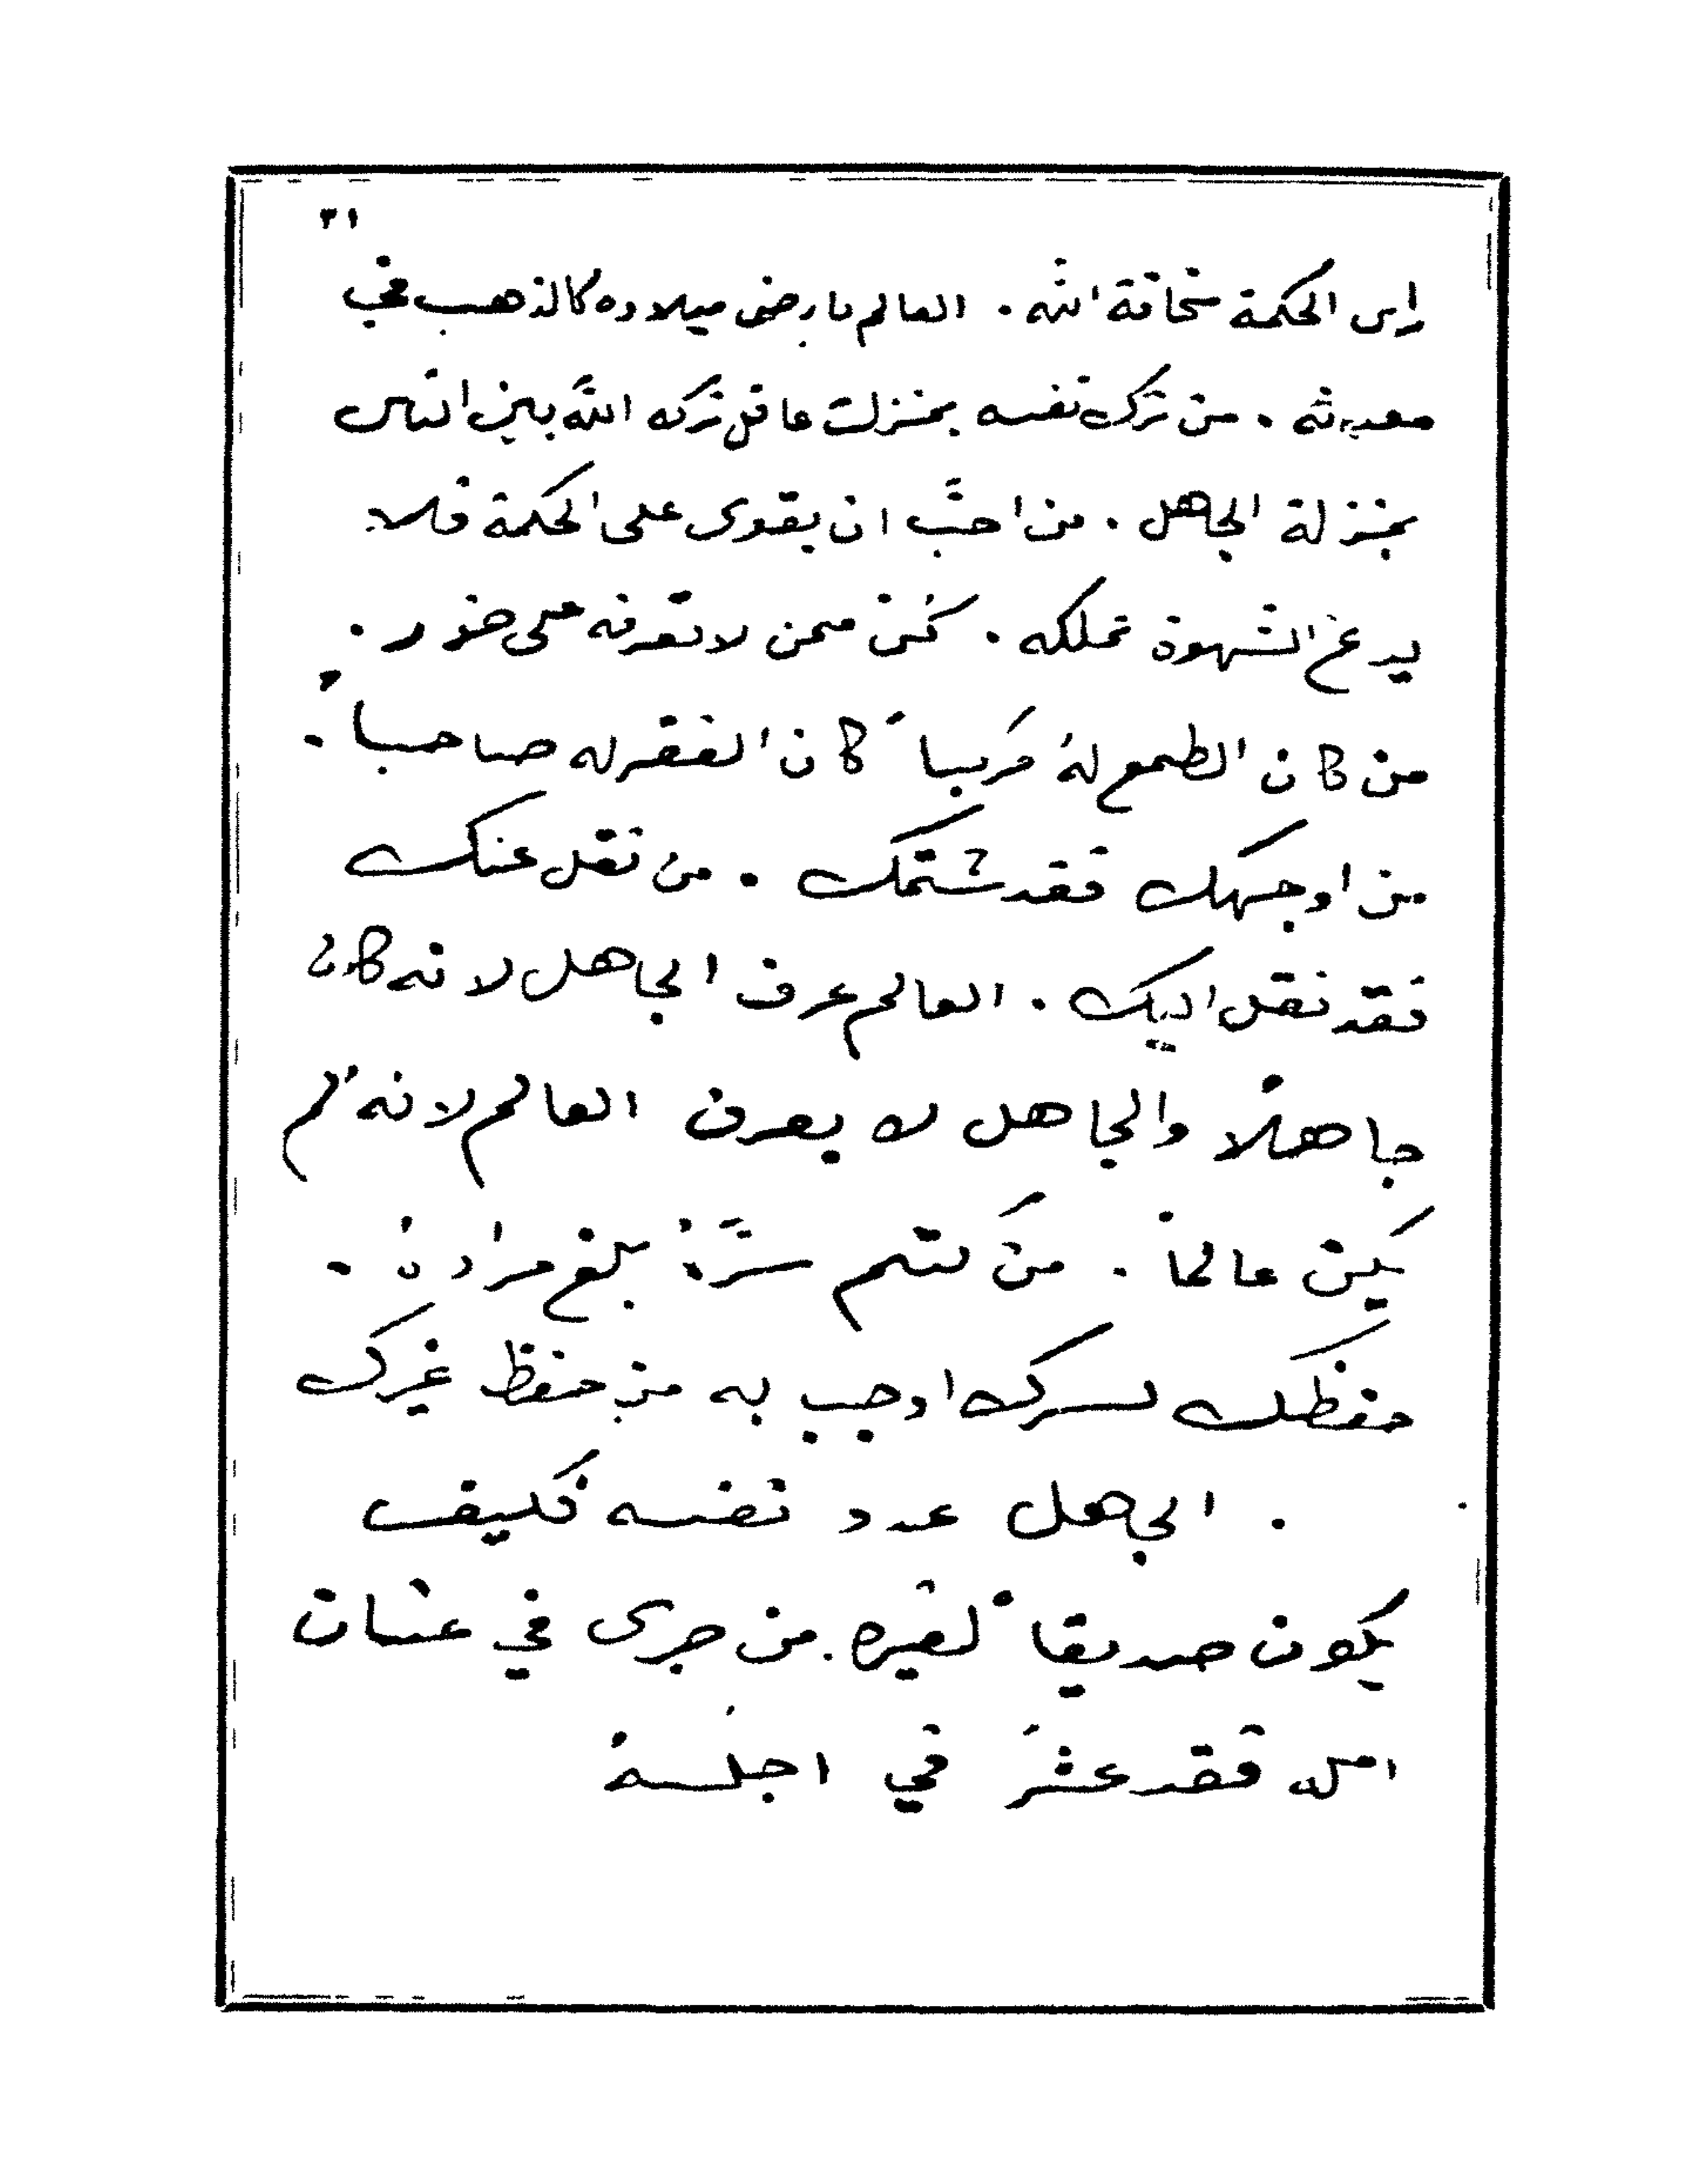 ٣١
راس الحكمة مخافة الله . العالم بارض ميلاده كالذهب في
معدنه . من ترك نفسه بمنزلت عاقل تركه الله بين الناس
بمنزلة الجاهل . من احبَّ ان يقوى على الحكمة فلا
يدع الشهوة تملكه . كن ممن لا تعرفه على حذر .
من كان الطمع لهُ مركباً كان الفقر له صاحباً .
من اوجهك فقد شتمك . من نقل عنك
فقد نقل اليك . العالم عرف الجاهل لانه كان
جاهلاً والجاهل لا يعرف العالم لانه لم
يكن عالماً . من كتم سرَّهُ بلغ مرادهُ .
حفظك لسرك اوجب به من حفظ غيرك
. الجهل عدو نفسه فكيف
يكون صديقاً لغيره . من جرى في عنان
امله فقد عثر في اجلهُ